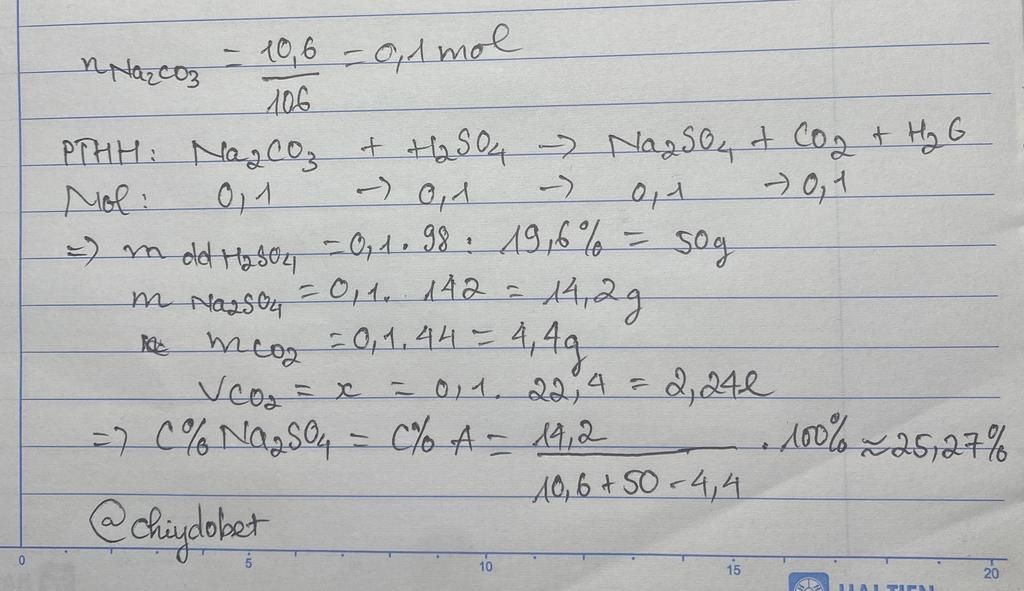 nNa2CO3 = 10,6/106 = 0,1 mol
PTHH: Na2CO3 + H2SO4 -> Na2SO4 + CO2 + H2O
Mol: 0,1 -> 0,1 -> 0,1 -> 0,1
=> m dd H2SO4 = 0,1. 98 : 19,6% = 50g
m Na2SO4 = 0,1. 142 = 14,2g
mCO2 = 0,1.44 = 4,4g
VCO2 = x = 0,1. 22,4 = 2,24l
=> C% Na2SO4 = C% A = 14,2/(10,6+50-4,4) . 100% ≈ 25,27%
@chiydobet
0 5 10 15 20